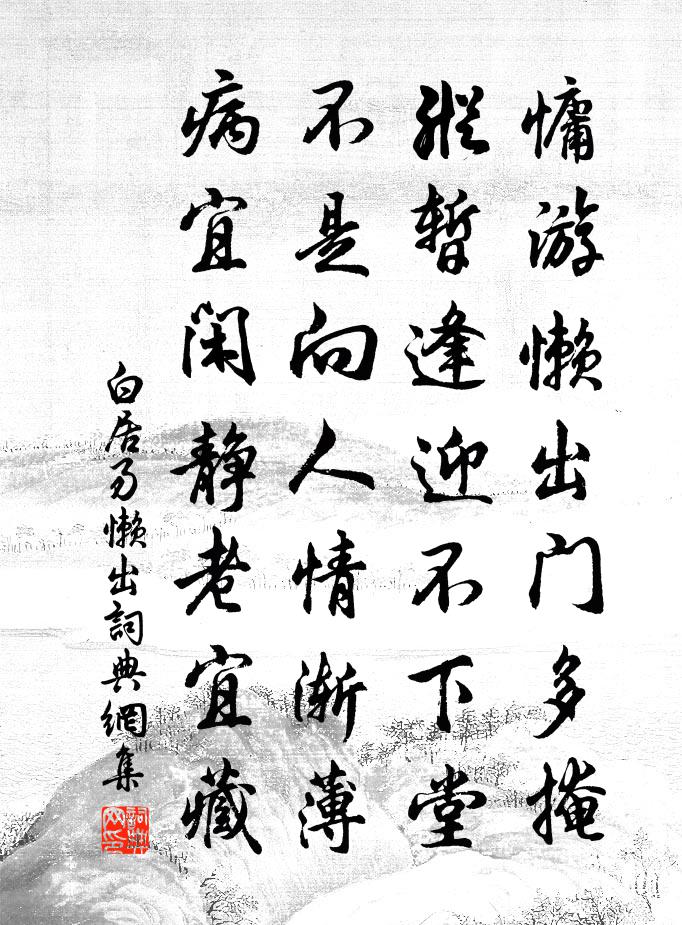 慵游懒出门多掩
縱暫逢迎不下堂
不是向人情渐薄
病宜閑静老宜藏
白居易懒出詞典網集